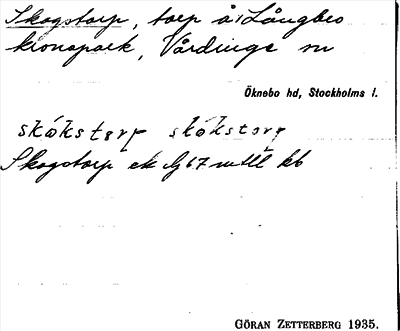 Skogstorp, torp å Långbro
kronopark, Vårdinge sn
Öknebo hd, Stockholms l.
skókstorp skókstorp
Skogstorp ek
GÖRAN ZETTERBERG 1935.